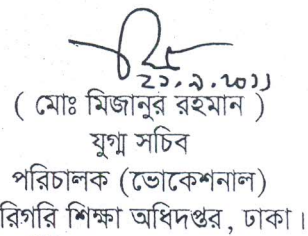 ২১.৯.২০১১
( মোঃ মিজানুর রহমান )
যুগ্ম সচিব
পরিচালক (ভোকেশনাল)
রিগরি শিক্ষা অধিদপ্তর, ঢাকা।